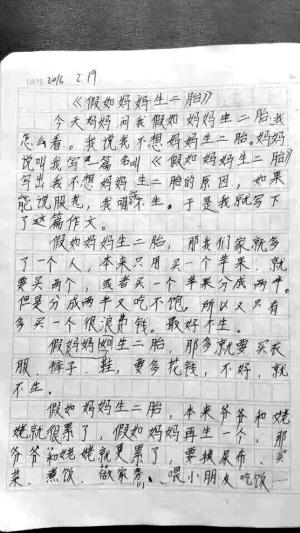 DATE 2016 2 19
《假如妈妈生二胎》
今天妈妈问我假如妈妈生二胎我
怎么看。我说我不想妈妈生二胎。妈妈
说叫我写一篇名叫《假如妈妈生二胎》
写出我不想妈妈生二胎的原因，如果
能说服我，我就不生。于是我就写下
了这篇作文。
假如妈妈生二胎，那我们家就多
了一个人，本来只用买一个苹果，就
要买两个，或者买一个苹果分成两半。
但是分成两半又吃不饱，所以又只有
多买一个很浪费钱。最好不生。
假如妈妈生二胎，那多就要买衣
服、裤子、鞋，要多花钱，不好，就
不生。
假如妈妈生二胎，本来爷爷和姥
姥就很累了，假如妈妈再生一个，那
爷爷和姥姥就更累了，要换尿布、买
菜、煮饭、做家务、喂小朋友吃饭……